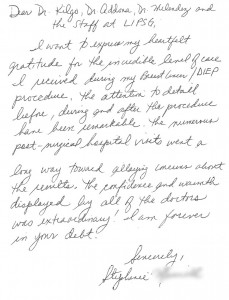 Dear Dr. Kilgo, Dr. Addona, Dr. Melendez and
the Staff at LIPSG,
I want to express my heartfelt
gratitude for the incredible level of care
I received during my Breast Cancer/DIEP
procedure. The attention to detail
before, during and after the procedure
have been remarkable. The numerous
post-surgical hospital visits went a
long way toward allaying concerns about
the results. The confidence and warmth
displayed by all of the doctors
was extraordinary! I am forever
in your debt!
Sincerely,
Stephanie